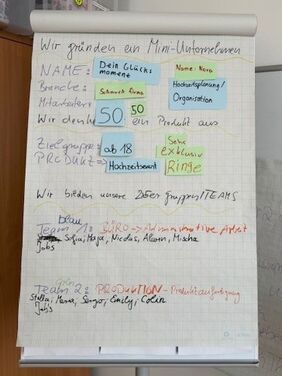 Wir gründen ein Mini-Unternehmen
NAME: Dein Glücks moment Name: Nora
Branche: Schmuck Firma Hochzeitsplanung/ Organisation
Mitarbeiter: 50 50
Wir denken ein Produkt aus
Zielgruppe: ab 18 Sehr exklusiv
PRODUKT: Hochzeitsevent Ringe
Wir bilden unsere 2er gruppen/TEAMS
blau
Team 1: BÜRO → Administrative Arbeit
Sofia, Maja, Nicolas, Mischa
Jobs
Team 2: PRODUKTION - Produktanfertigung
Stella, Mona, Sergo, Emily, Colin
Jobs